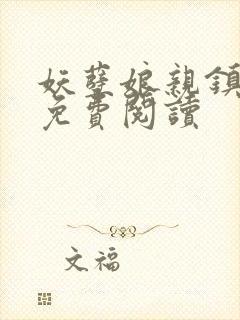 妖孽娘親鎮
免費閱讀
文福